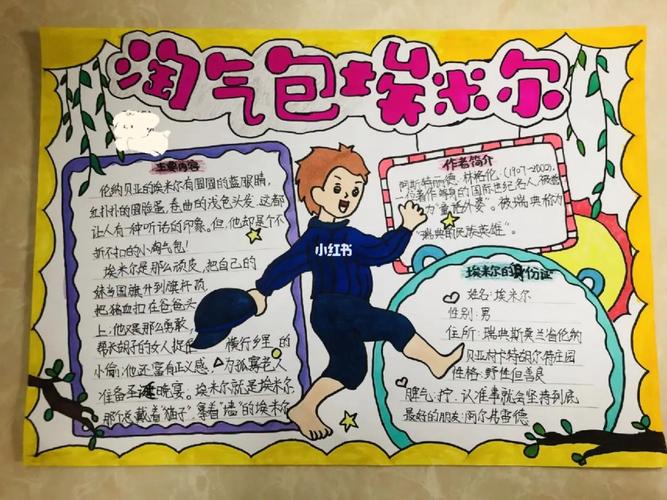 淘气包埃米尔
主要内容
伦纳贝亚的埃米尔有圆圆的蓝眼睛,
红扑扑的圆脸蛋,卷曲的浅色头发,这都
让人有一种听话的印象。但,他却是个不
折不扣的小淘气包!
埃米尔是那么顽皮,把自己的
妹当国旗升到旗杆顶
把猪血扣在爸爸头
上;他又是那么勇敢,
帮 胡子的女人捉住 横行乡里的
小偷;他还富有正义感,为孤寡老人
准备圣诞晚宴。埃米尔就是埃米尔
那 戴着“猫子”,拿着“墙”的埃米尔
作者简介
阿斯特丽德·林格伦,(1907-2002),
一位著作等身的国际世纪名人,被誉
为“童话外婆”。被瑞典格为
“瑞典的民族英雄”。
小红书
埃米尔的身份证
姓名:埃米尔
性别:男
住所:瑞典斯莫兰省伦纳
贝亚村卡特胡尔特庄园
性格:野性但善良
脾气:拧,认准事就会坚持到底
最好的朋友:阿尔弗雷德